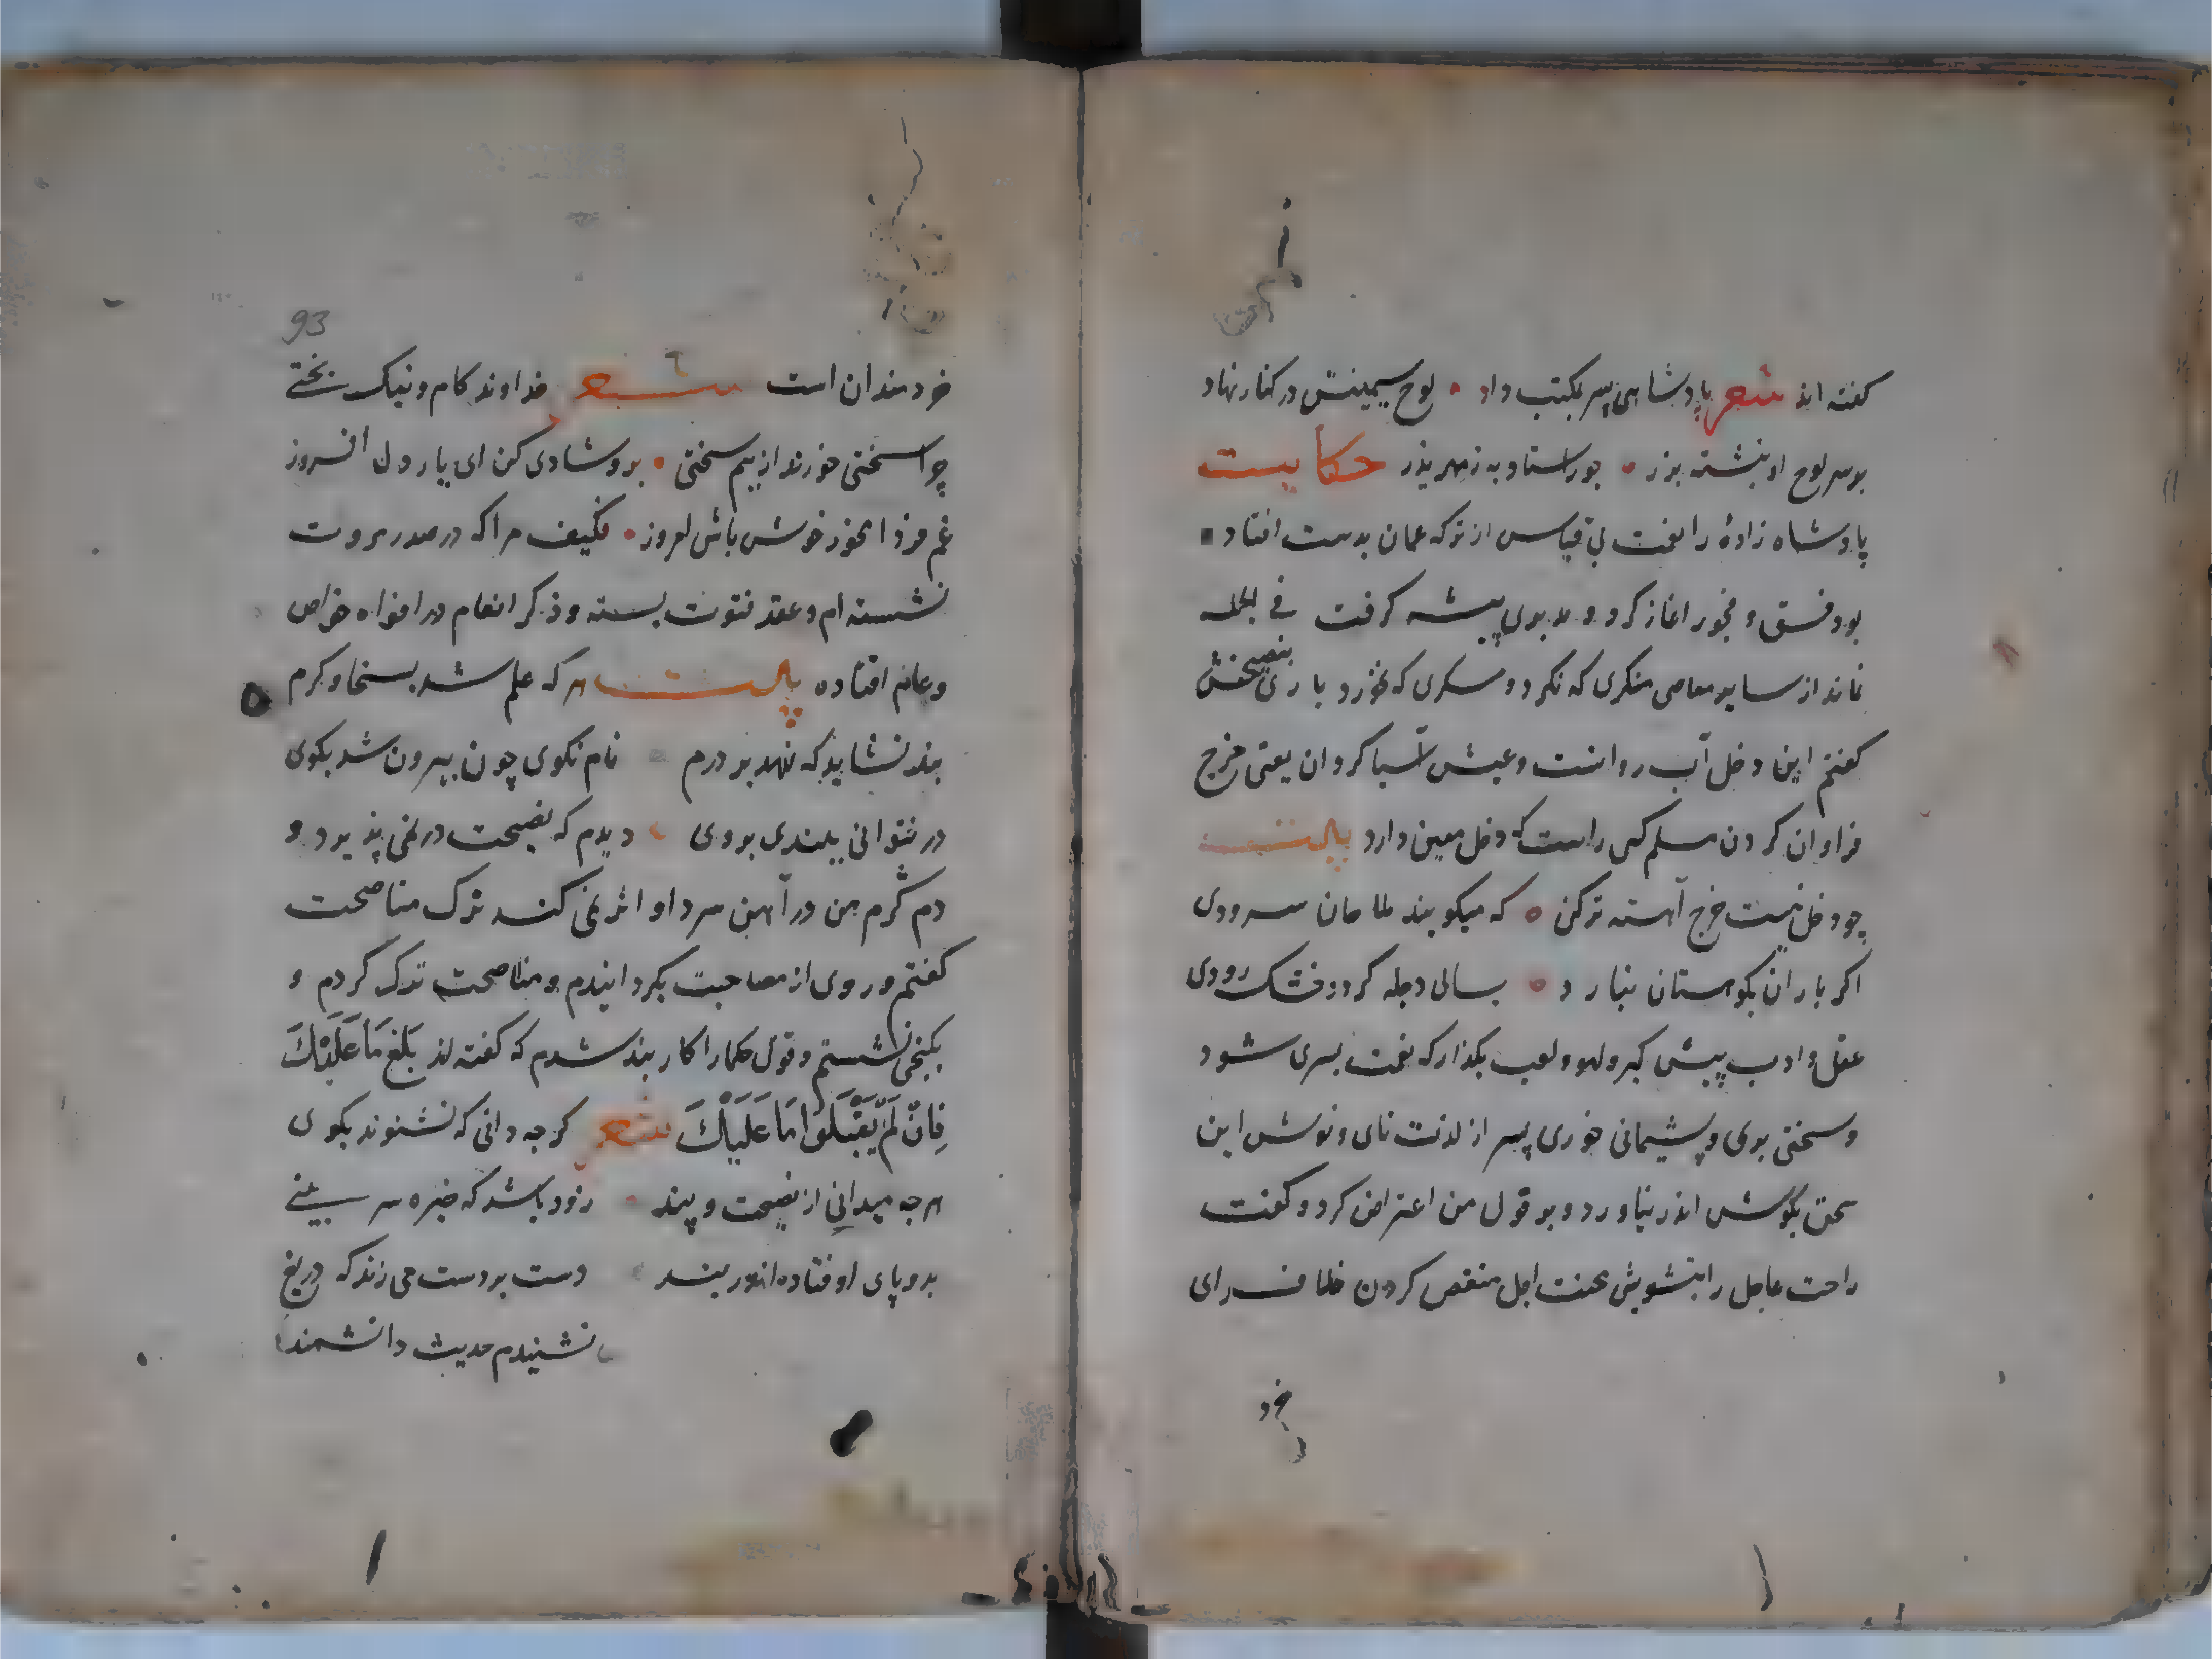 کفته اند شعر پادشاهی پسر بمکتب داد لوح سیمینش در کنار نهاد
بر سر لوح او نبشته بزر جور استاد به ز مهر پذر حکایت
پادشاه زادهٔ را نعمت بی قیاس از ترکه عمان بدست افتاد
بود فسق و فجور اغاز کرد و مدبری پیشه کرفت فی الجمله
نماند از سایر معاصی منکری که نکرد و مسکری که نخورد باری بنصیحتش
کفتم این دخل آب روانست و عیش آسیا کردان یعنی خرج
فراوان کردن مسلم کسی راست که دخل معین دارد بیت
چو دخلت نیست خرج آهسته تر کن که میکویند ملاحان سرودی
اکر باران بکوهستان نبارد بسالی دجله کردد خشک رودی
عقل و ادب پیش کیر و لهو و لعب بکذار که نعمت بسری شود
و سختی بری و پشیمانی خوری پسر از لذت نای و نوش این
سخن بکوش اندر نیاورد و بر قول من اعتراض کرد و کفت
راحت عاجل را بتشویش محنت اجل منغص کردن خلاف رای
خرد
93
خردمندان است شعر خداوند کام و نیک بختی
چرا سختی خورند از بیم سختی برو شادی کن ای یار دل افروز
غم فردا نخور خوش باش امروز فکیف مرا که در صدر مروت
نشسته ام و عقد فتوت بسته و ذکر انعام در افواه خواص
و عام افتاده بیت هر که علم شد بسخا و کرم
بند نشاید که نهد بر درم نام نکوی چون بیرون شد بکوی
در نتوانی ببندی بروی دیدم که نصیحت در نمی پذیرد و
دم گرم من در آهن سرد او اثر نمی کند ترک مناصحت
کفتم و روی از مصاحبت بکردانیدم و مناصحت ترک کردم و
بکنجی نشستم و قول حکما را کار بند شدم که کفته اند بَلِّغ مَا عَلَیْكَ
فَاِنْ لَمْ یَقْبَلُوا مَا عَلَیْكَ شعر کرچه دانی که نشنوند بکوی
هرچه میدانی از نصیحت و پند زود باشد که خیره سر بینی
بدو پای اوفتاده اندر بند دست بر دست می زند که دریغ
نشنیدم حدیث دانشمند